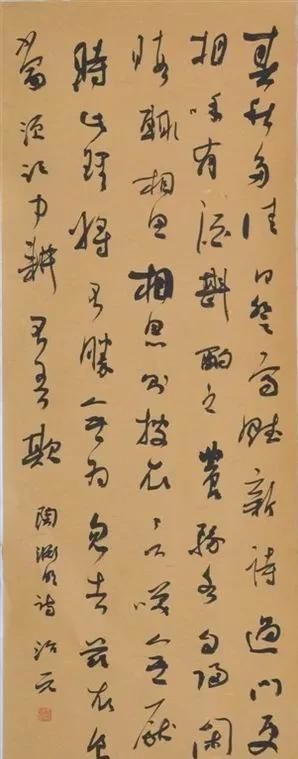 春秋多佳日登高賦新詩過門更
相呼有酒斟酌之農務各自歸閑
暇輒相思相思則披衣言咲無厭
時此理將不勝無為忽去茲衣食
當須紀力耕不吾欺 陶淵明詩